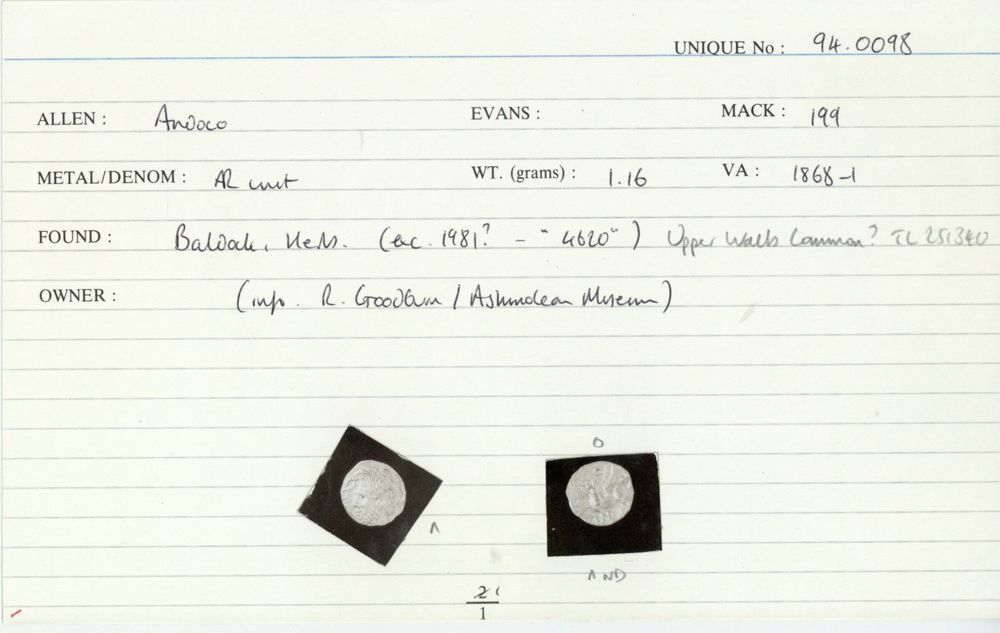 UNIQUE No : 94.0098
ALLEN : Andoco EVANS : MACK : 199
METAL/DENOM : AR unit WT. (grams) : 1.16 VA : 1868-1
FOUND : Baldock, Herts. (exc. 1981? - "4620") Upper Walls Common? TL 251340
OWNER : (info. R. Goodburn / Ashmolean Museum)
O
Λ
Λ ND
1